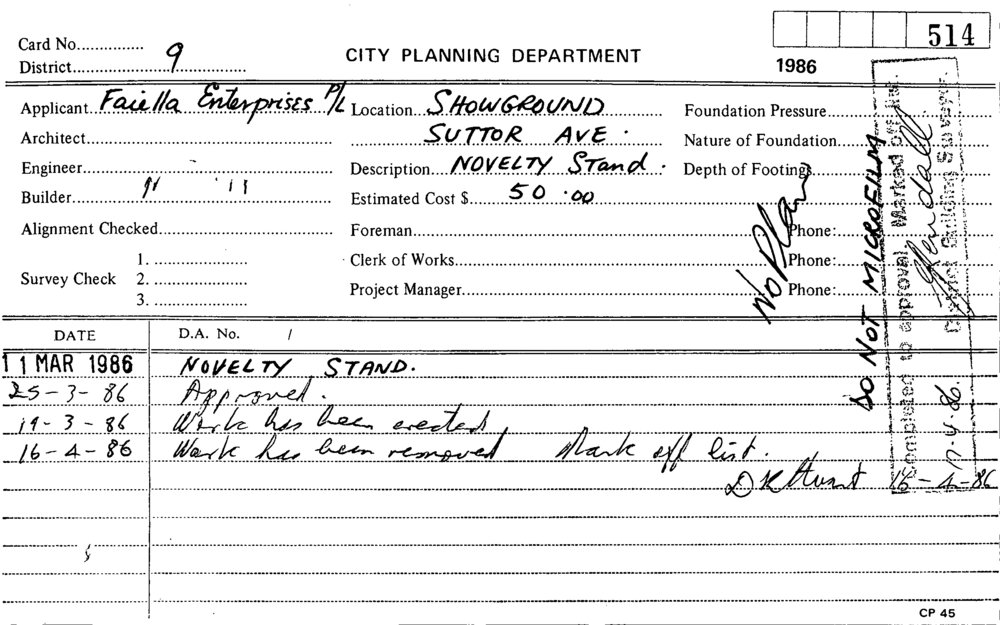 514
Card No...............
District.............. 9
CITY PLANNING DEPARTMENT
1986
Applicant Faiella Enterprises P/L
Location SHOWGROUND
Foundation Pressure
Architect
SUTTOR AVE.
Nature of Foundation
Engineer
Description NOVELTY Stand.
Depth of Footings
Builder " "
Estimated Cost $ 50.00
Alignment Checked
Foreman
Phone:
Survey Check 1.
2.
3.
Clerk of Works
Phone:
Project Manager
Phone:
No Plans
DO NOT MICROFILM
Completed to approval Marked off
District Building Surveyor
DATE D.A. No. /
11 MAR 1986 NOVELTY STAND.
25-3-86 Approved.
19-3-86 Work has been erected
16-4-86 Work has been removed Mark off list.
16-4-86
CP 45